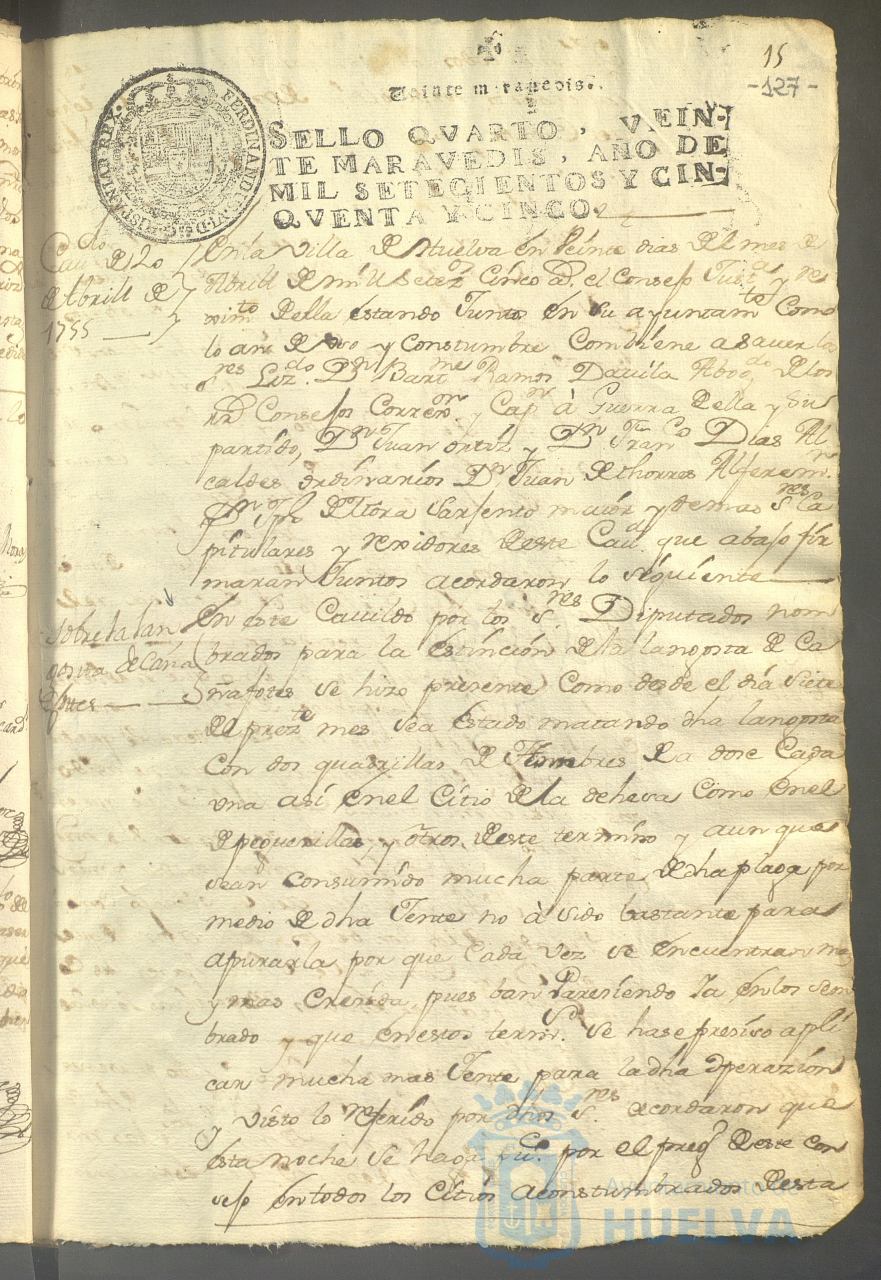 15
-127-
Veinte maravedis.
SELLO QVARTO, VEIN-
TE MARAVEDIS, AÑO DE
MIL SETECIENTOS Y CIN-
QVENTA Y CINCO.
FERDINAND. VI. D. G. HISPANIAR. REX.
Cavdo de 20
de Abrill de
1755
En la Villa de Huelva en Veinte dias del mes de
Abrill de mill Setez. Cinco as. el Consejo Justa. y re
ximto della estando Juntos en su ayuntamte Como
lo an de uso y Constumbre Combiene a saver los
sres Lizdo. Dn Barme Ramos Davila Abogdo de los
Rs Consejos Correxor. y Capn à Guerra della y su
partido, Dn Juan ortiz y Dn Franco Dias Al
caldes ordinarios Dn Juan de thorres Alferes mr.
Dn Jph de Mora Sarjento maior y demas sres Ca
pitulares y rexidores deste Cavdo. que abajo fir
maran Juntos acordaron lo siguiente
Sobre la lan
gosta de Caña
fotes
En este Cavildo por los sres Diputados nom
brados para la estinción de la langosta de Ca
ñafotes se hizo presente Como desde el día Siete
del preste mes sea estado matando dha langosta
con dos quadrillas de Hombres de a dose Cada
una asi en el Citio de la dehesa Como en el
de pequerillas, y otros deste termino y aunque
sean Consumído mucha parte de dha plaga por
medio de dha Jente no à sido bastante para
apurarla por que Cada vez se encuentran mas
y mas Cresida, pues ban Paresiendo Ia en los sem
brado y que en estos termis. se hase presiso apli
car mucha mas Jente para la dha operazión
y visto lo referido por dhos sres acordaron que
esta noche se haga puco. por el preg. deste con
sejo en todos los Citios aconstumbrados desta
Ayuntamiento de
HUELVA